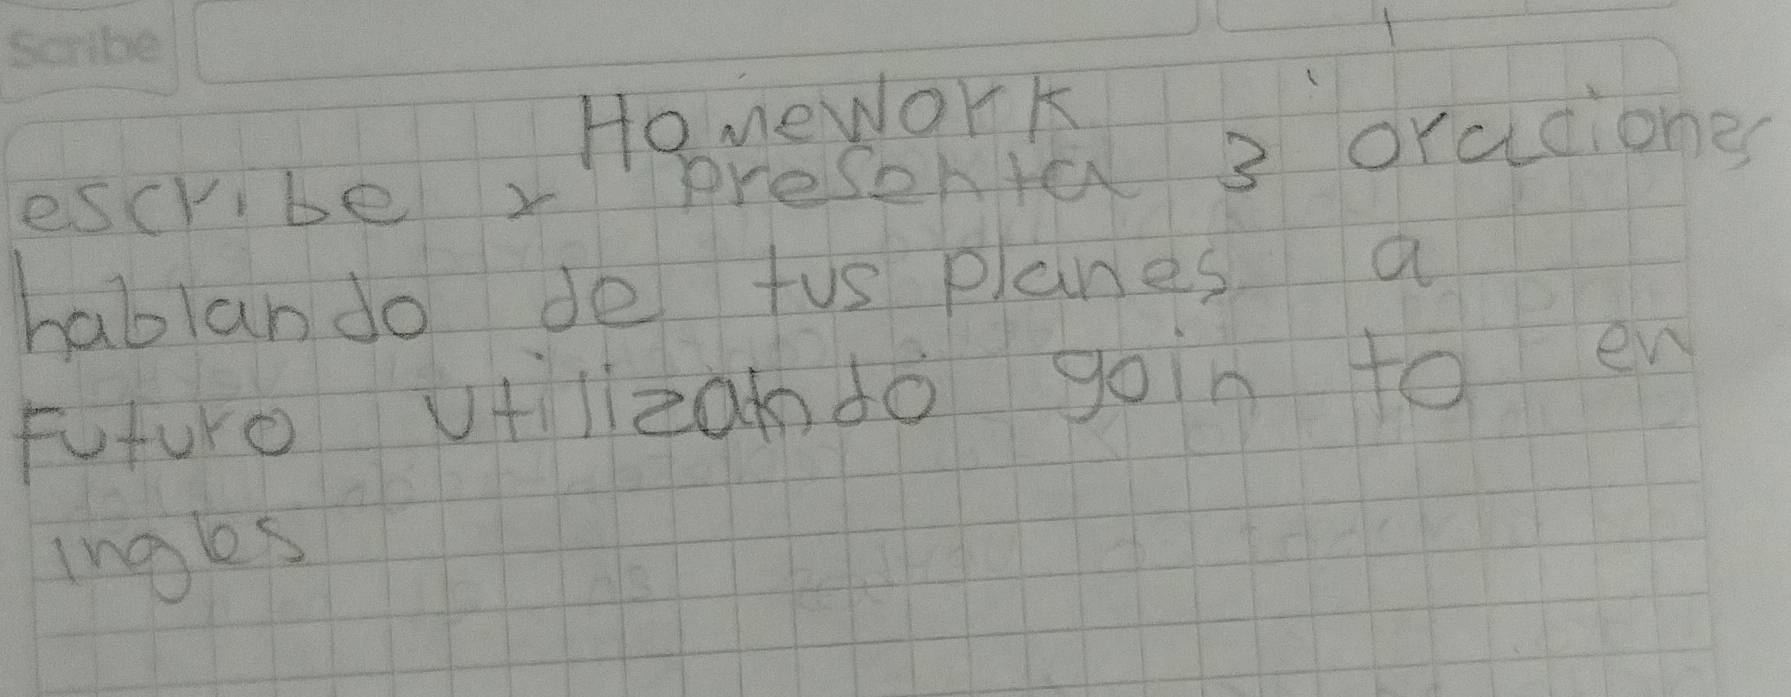 Scribe
Homework
escribe y presenta 3 oraciones
hablando de tus planes a
Futuro utilizando goin to en
ingles